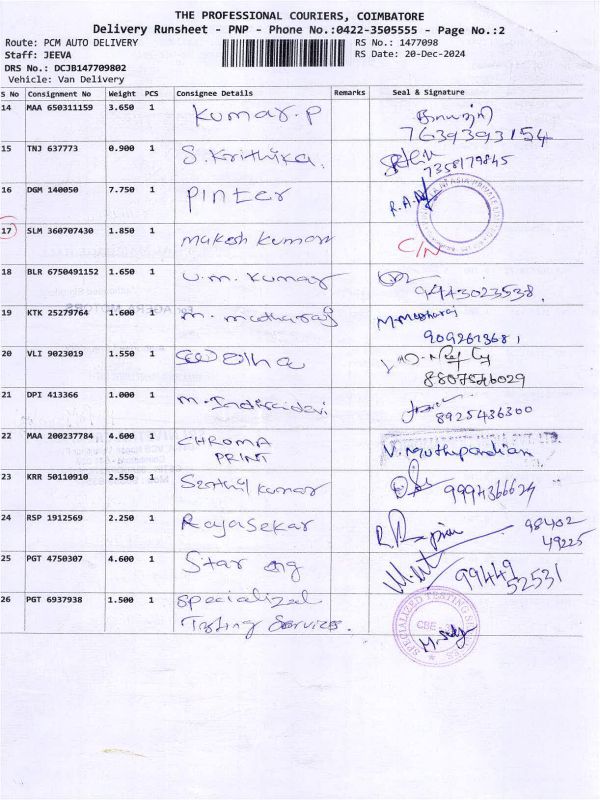 THE PROFESSIONAL COURIERS, COIMBATORE
Delivery Runsheet - PNP - Phone No.:0422-3505555 - Page No.:2
Route: PCM AUTO DELIVERY RS No.: 1477098
Staff: JEEVA RS Date: 20-Dec-2024
DRS No.: DCJB147709802
Vehicle: Van Delivery
S No Consignment No Weight PCS Consignee Details Remarks Seal & Signature
14 MAA 650311159 3.650 1 Kumar.P
7639393154
15 TNJ 637773 0.900 1 S.Krithika.
7358179845
16 DGM 140050 7.750 1 Pinter
17 SLM 360707430 1.850 1 Makesh Kumar C/N
18 BLR 6750491152 1.650 1 U.M. Kumar 9443023538.
19 KTK 25279764 1.600 1
20 VLI 9023019 1.550 1
8807546029
21 DPI 413366 1.000 1 8925436300
22 MAA 200237784 4.600 1 CHROMA PRINT V. Muthupandian
23 KRR 50110910 2.550 1 Senthil Kumar
24 RSP 1912569 2.250 1 Rajasekar 98402
49225
25 PGT 4750307 4.600 1 Star 99449
52531
26 PGT 6937938 1.500 1 Specialized
Testing Services. SPECIALIZED TESTING CBE